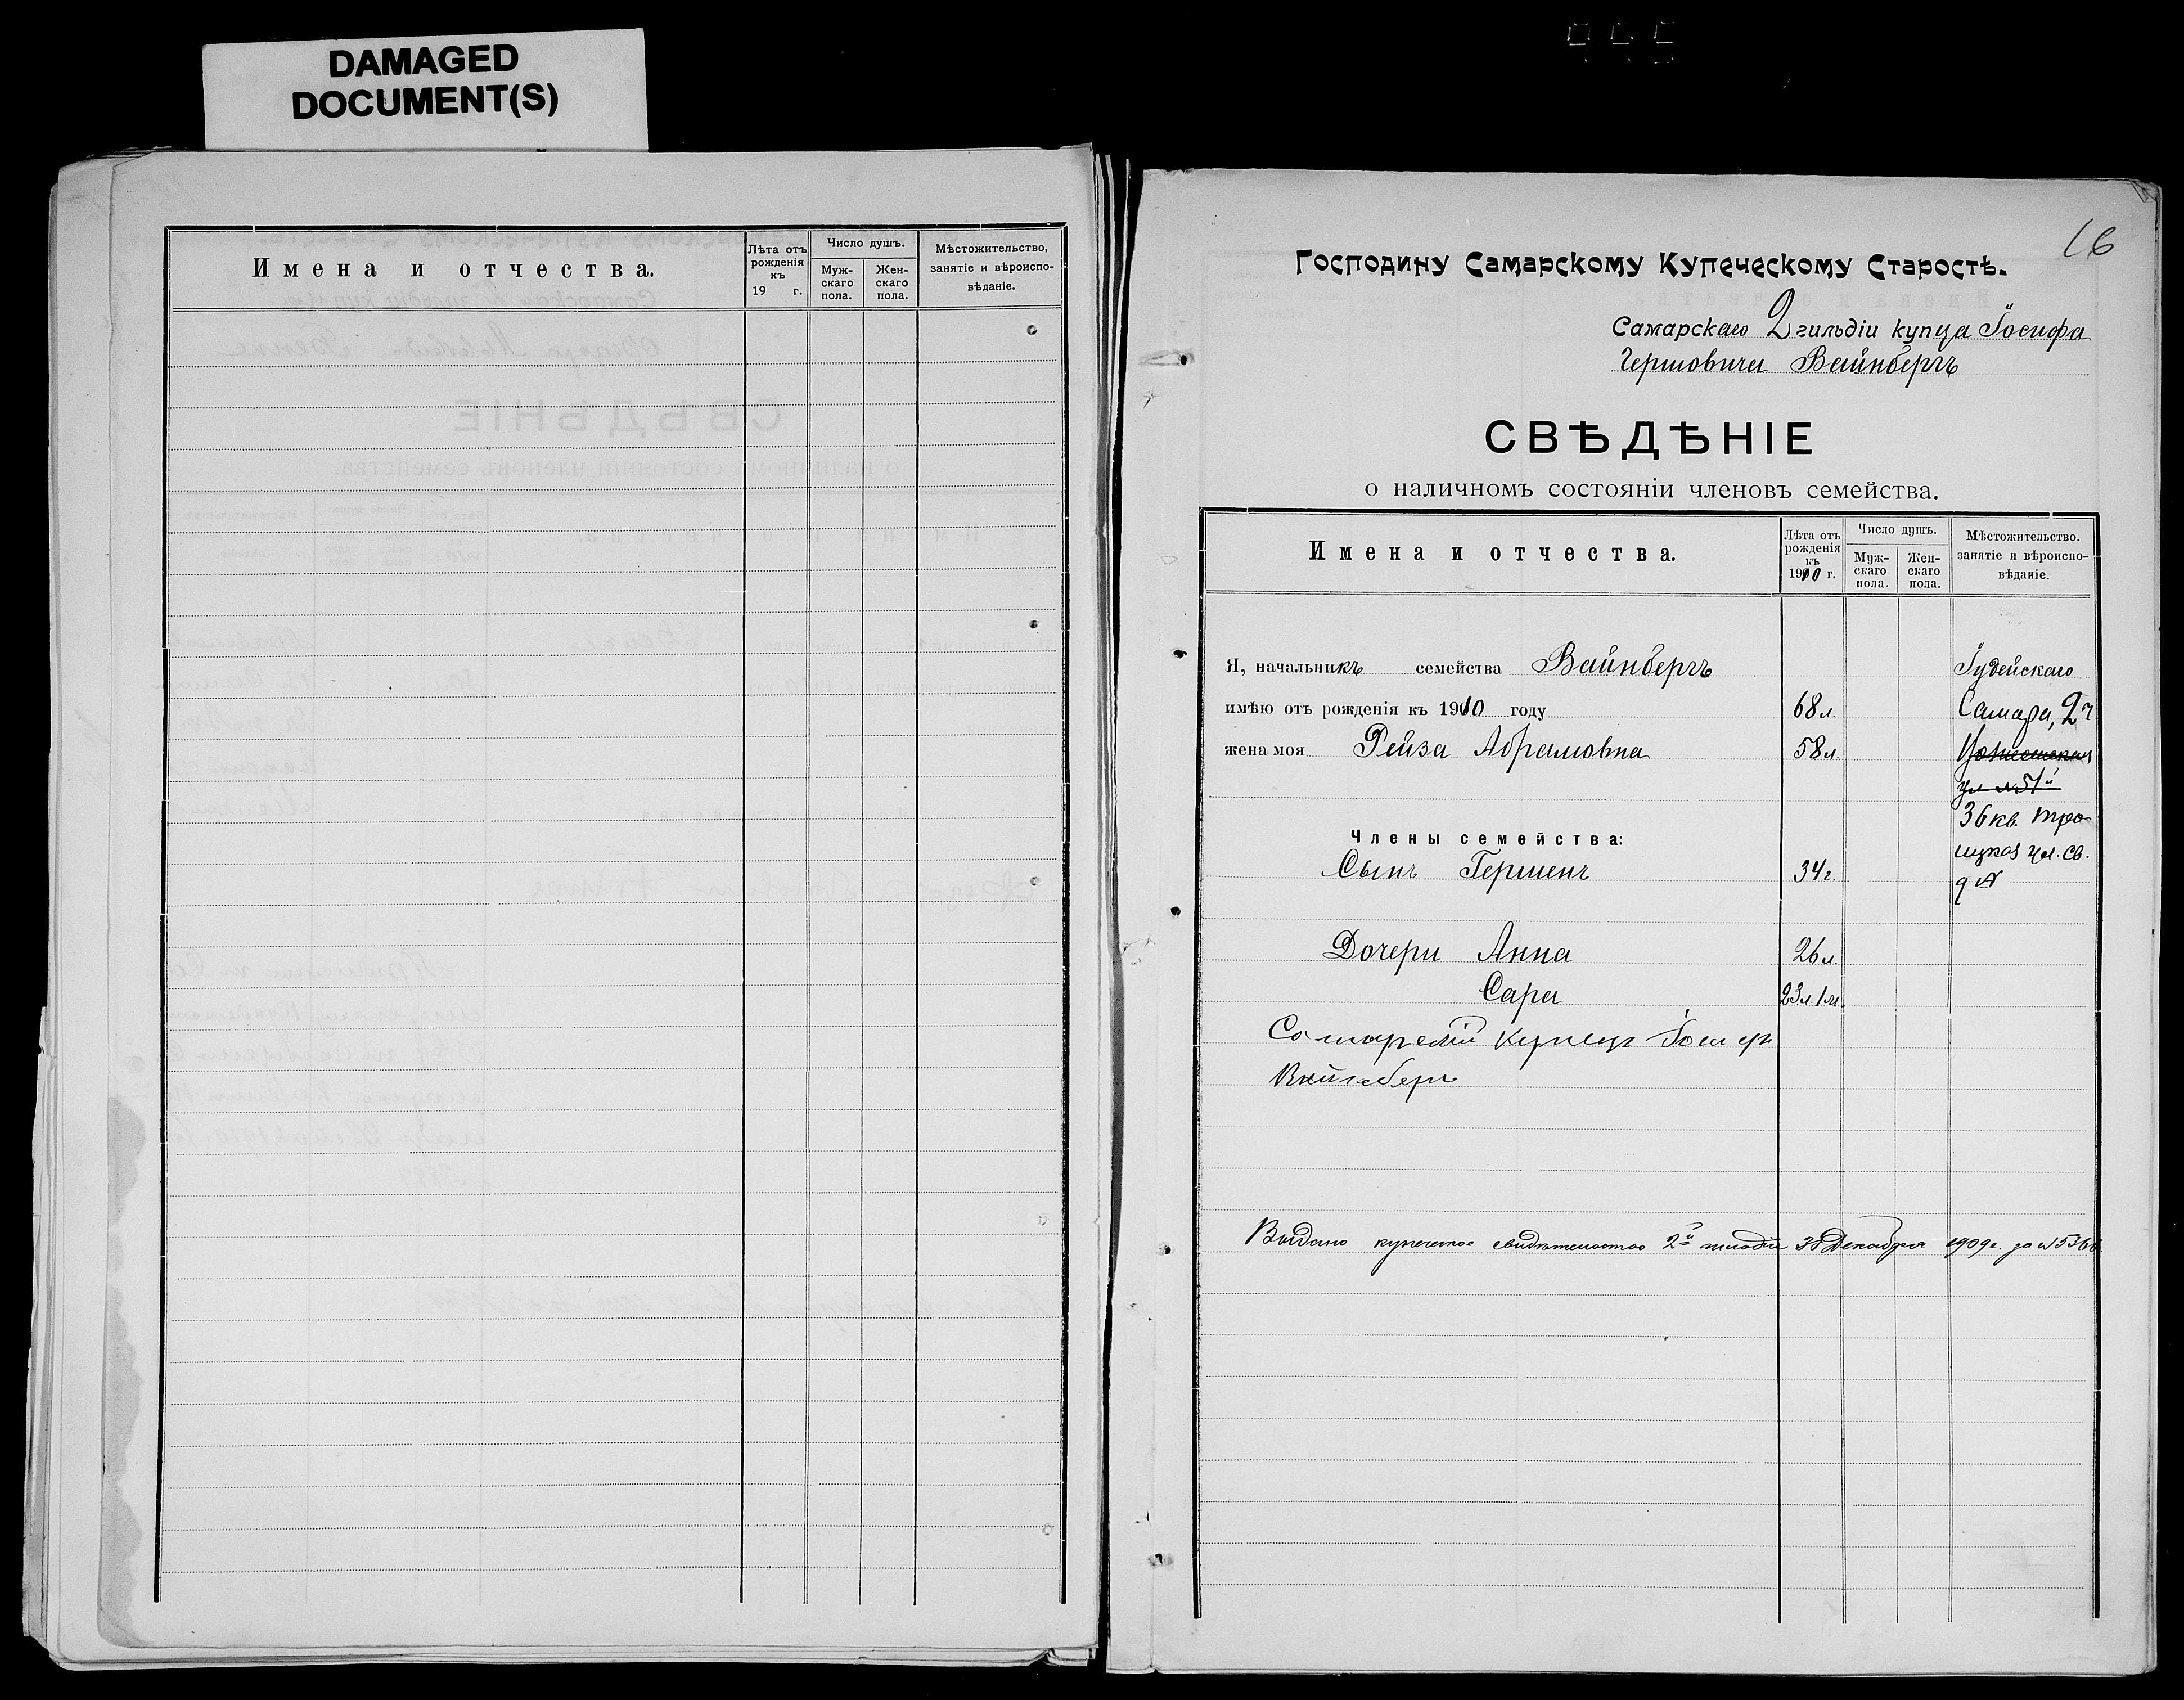 DAMAGED
DOCUMENT(S)
Имена и отчества.
Лѣта отъ рожденія къ 19 г.
Число душъ.
Муж-скаго пола.
Жен-скаго пола.
Мѣстожительство, занятіе и вѣроиспо-вѣданіе.
16
Господину Самарскому Купеческому Старостѣ.
Самарскаго 2 гильдіи купца Іосифа
Гершовича Вайнбергъ
СВѢДѢНІЕ
о наличномъ состояніи членовъ семейства.
Имена и отчества.
Лѣта отъ рожденія къ 1910 г.
Число душъ.
Муж-скаго пола.
Жен-скаго пола.
Мѣстожительство. занятіе и вѣроиспо-вѣданіе.
Я, начальникъ семейства Вайнбергъ Іудейскаго
имѣю отъ рожденія къ 1910 году 68 л. Самара, 2 ч
жена моя Рейза Абрамовна 58 л.
ул №51
36 кв. Тро-
Члены семейства:
ицкая ул. св.
Сынъ Гершенъ 34 г. д №
Дочери Анна 26 л.
Сара 23 л. 1 м.
Самарскій Купецъ Іосифъ
Вайнберг
Выдано купеческое свидѣтельство 2й гильдіи 30 Декабря 1909 г. за №